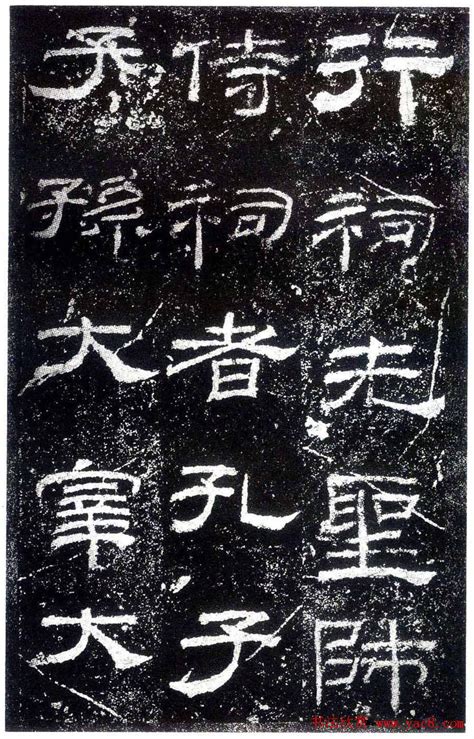 行祠先聖師
侍祠者孔子
子孫大宰大
www.yac8.com